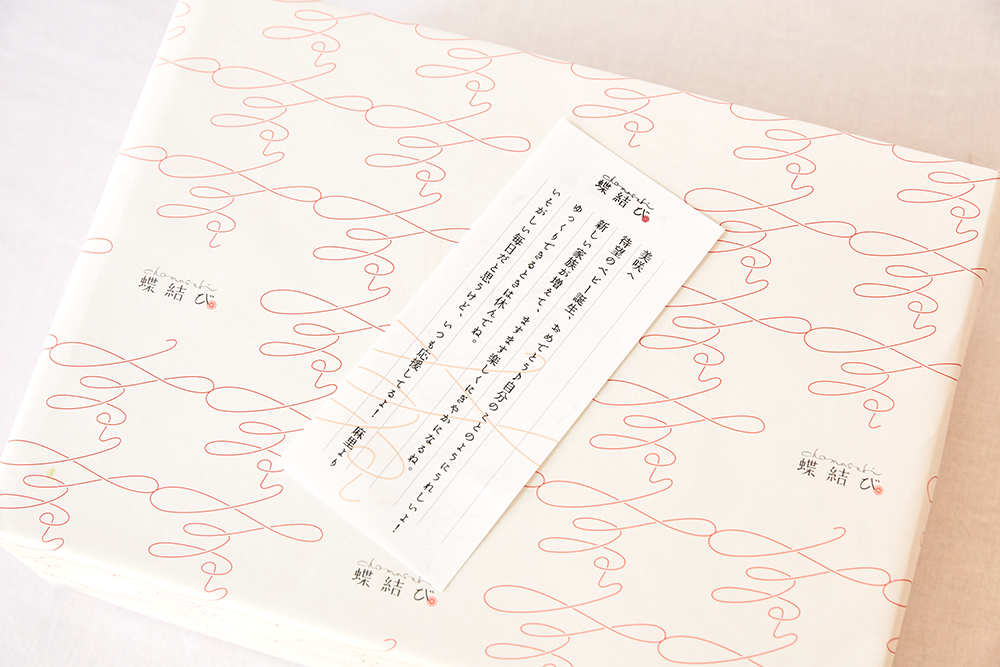 chomusubi
蝶結び
美咲へ
待望のベビー誕生、おめでとう♪自分のことのようにうれしいよ!
新しい家族が増えて、ますます楽しくにぎやかになるね。
ゆっくりできるときは休んでね。
いそがしい毎日だと思うけど、いつも応援してるよ! 麻里より
chomusubi
蝶結び
chomusubi
蝶結び
chomusubi
蝶結び